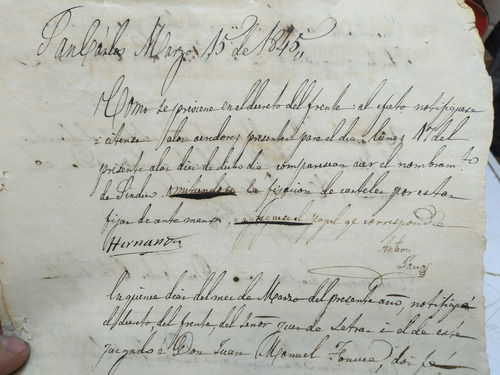 San Carlos Marzo 15 de 1845,,
Como se previene en el decreto del frente: al efecto notifiquese
i citense a los acredores presentes para el dia lunes del
presente a las diez de dicho dia comparescan a ver el nombram.to
de Sindico omitiendose la fijacion de carteles por estar
fijar de ante mano, agreguese el papel qe corresponde
Hernandz
En quince dias del mes de Marzo del presente año, notifiqué
el decreto del frente del Señor Juez de Letras i el de este
juzgado á Don Juan Manuel Fonseca, doi fé